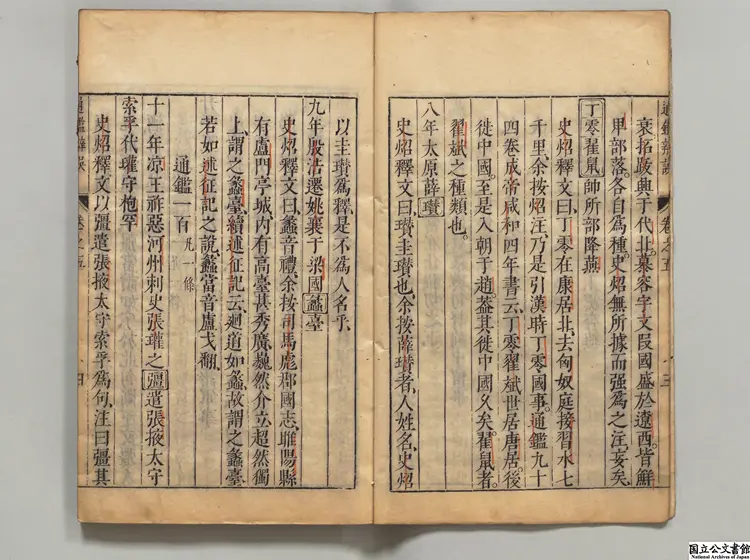 通鑑辨誤 卷之五 十三
衰拓跋興于代北慕容宇文叚國盛於遼西皆鮮
卑部落各自為種史炤無所據而强為之注妄矣
丁零翟鼠帥所部降燕
史炤釋文曰丁零在康居北去匈奴庭接習水七
千里余按炤注乃是引漢時丁零國事通鑑九十
四卷成帝咸和四年書云丁零翟斌世居唐居後
徙中國至是入朝于趙葢其徙中國乆矣翟鼠者
翟斌之種類也
八年太原薛瓚
史炤釋文曰瓚圭瓚也余按薛瓚者人姓名史炤
以圭瓚為釋是不為人名乎
九年殷浩遷姚襄于梁國蠡臺
史炤釋文曰蠡音禮余按司馬彪郡國志睢陽縣
有盧門亭城内有高臺甚秀廣巍然介立超然獨
上謂之蠡臺續述征記云迴道如蠡故謂之蠡臺
若如述征記之說蠡當音盧戈翻
通鑑一百 凡一條
十一年凉王祚惡河州刺史張瓘之彊遣張掖太守
索孚代瓘守枹罕
史炤釋文以彊遣張掖太守索孚為句注曰彊其
通鑑辨誤 卷之五 十四
国立公文書館
National Archives of Japan